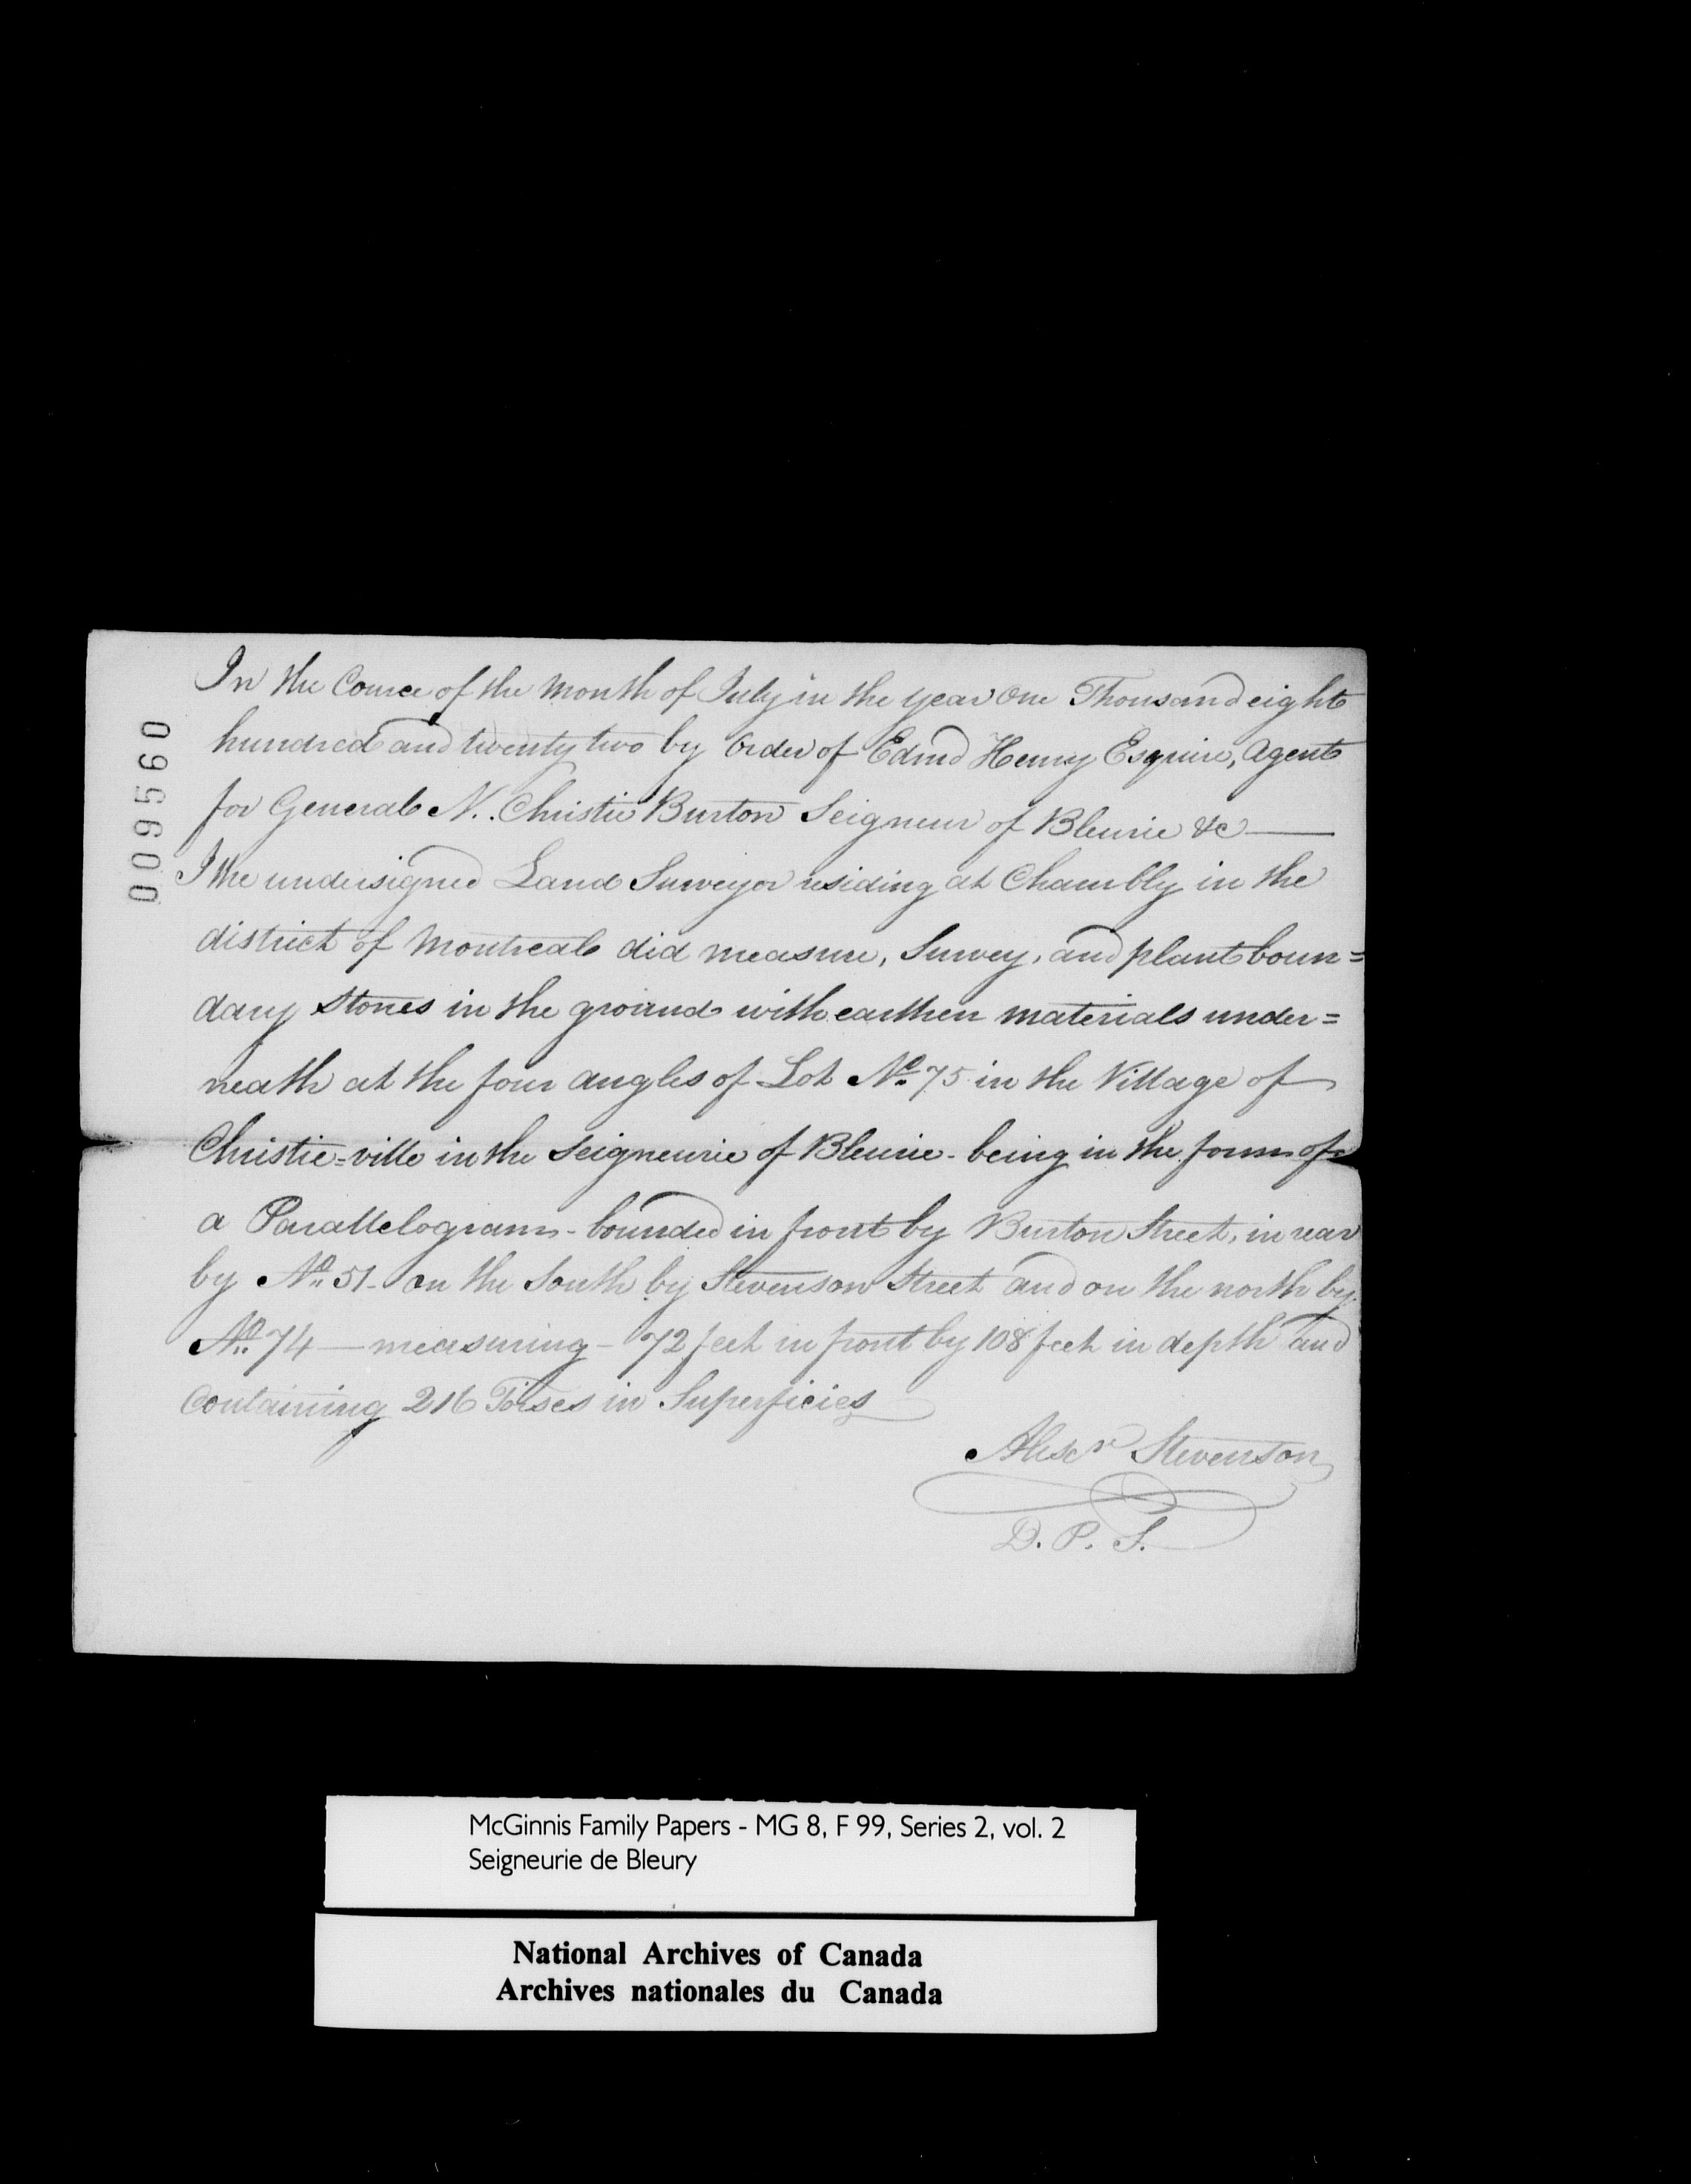 009560
In the Course of the Month of July in the year One Thousand eight
hundred and twenty two by Order of Edmd Henry Esquire, Agent
for General N. Christie Burton Seigneur of Bleurie &c
I the undersigned Land Surveyor residing at Chambly in the
district of Montreal did measure, Survey, and plant boun=
dary Stones in the ground with earthen materials under=
neath at the four angles of Lot No. 75 in the Village of
Christie=ville in the Seigneurie of Bleurie - being in the form of
a Parallelogram - bounded in front by Burton Street, in rear
by No. 51 - on the South by Stevenson Street and on the north by
No. 74 — measuring - 72 feet in front by 108 feet in depth and
Containing 216 Toises in Superficies
Alexr Stevenson
D. P. S.
McGinnis Family Papers - MG 8, F 99, Series 2, vol. 2
Seigneurie de Bleury
National Archives of Canada
Archives nationales du Canada